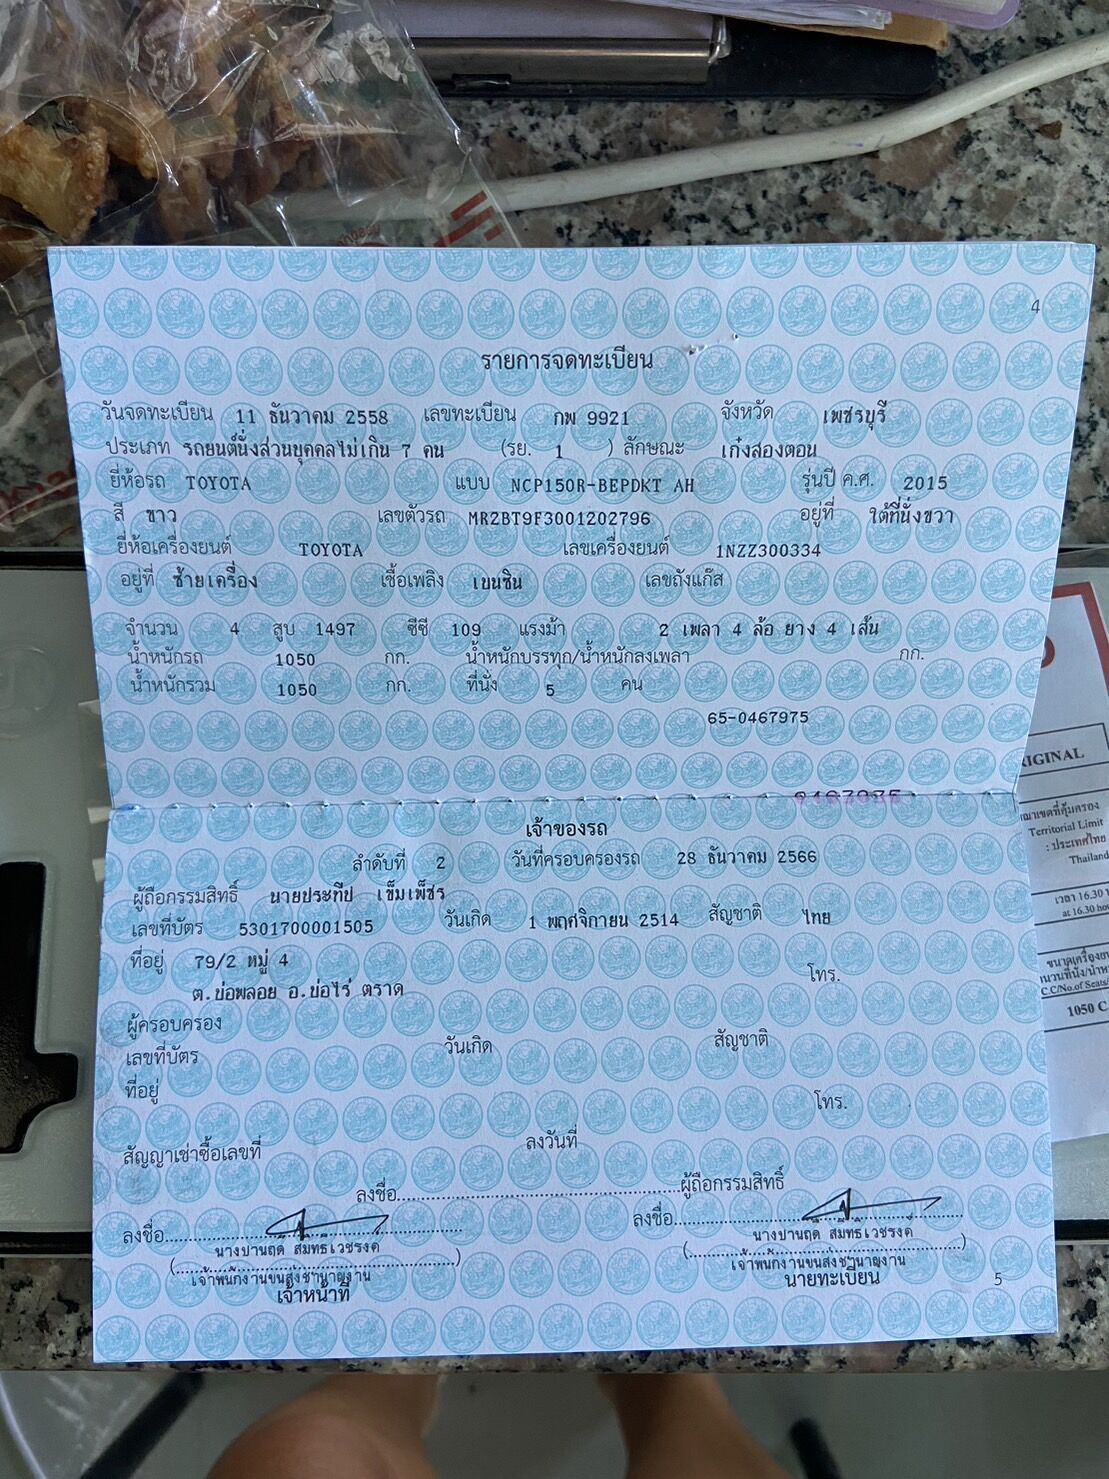 4
รายการจดทะเบียน
วันจดทะเบียน 11 ธันวาคม 2558 เลขทะเบียน กพ 9921 จังหวัด เพชรบุรี
ประเภท รถยนต์นั่งส่วนบุคคลไม่เกิน 7 คน (รย. 1 ) ลักษณะ เก๋งสองตอน
ยี่ห้อรถ TOYOTA แบบ NCP150R-BEPDKT AH รุ่นปี ค.ศ. 2015
สี ขาว เลขตัวรถ MR2BT9F3001202796 อยู่ที่ ใต้ที่นั่งขวา
ยี่ห้อเครื่องยนต์ TOYOTA เลขเครื่องยนต์ 1NZZ300334
อยู่ที่ ซ้ายเครื่อง เชื้อเพลิง เบนซิน เลขถังแก๊ส
จำนวน 4 สูบ 1497 ซีซี 109 แรงม้า 2 เพลา 4 ล้อ ยาง 4 เส้น
น้ำหนักรถ 1050 กก. น้ำหนักบรรทุก/น้ำหนักลงเพลา กก.
น้ำหนักรวม 1050 กก. ที่นั่ง 5 คน
65-0467975
เจ้าของรถ
ลำดับที่ 2 วันที่ครอบครองรถ 28 ธันวาคม 2566
ผู้ถือกรรมสิทธิ์ นายประทีป เข็มเพ็ชร
เลขที่บัตร 5301700001505 วันเกิด 1 พฤศจิกายน 2514 สัญชาติ ไทย
ที่อยู่ 79/2 หมู่ 4 โทร.
ต.บ่อพลอย อ.บ่อไร่ ตราด
ผู้ครอบครอง
เลขที่บัตร วันเกิด สัญชาติ
ที่อยู่ โทร.
สัญญาเช่าซื้อเลขที่ ลงวันที่
ลงชื่อ ผู้ถือกรรมสิทธิ์
ลงชื่อ ลงชื่อ
นางปานฤดี สมิทธิเวชรงค์ นางปานฤดี สมิทธิเวชรงค์
เจ้าพนักงานขนส่งชำนาญงาน เจ้าพนักงานขนส่งชำนาญงาน
เจ้าหน้าที่ นายทะเบียน
5
RIGINAL
Territorial Limit
: ประเทศไทย
Thailand
เวลา 16.30
at 16.30
C.C/No.of Seats/
1050 C